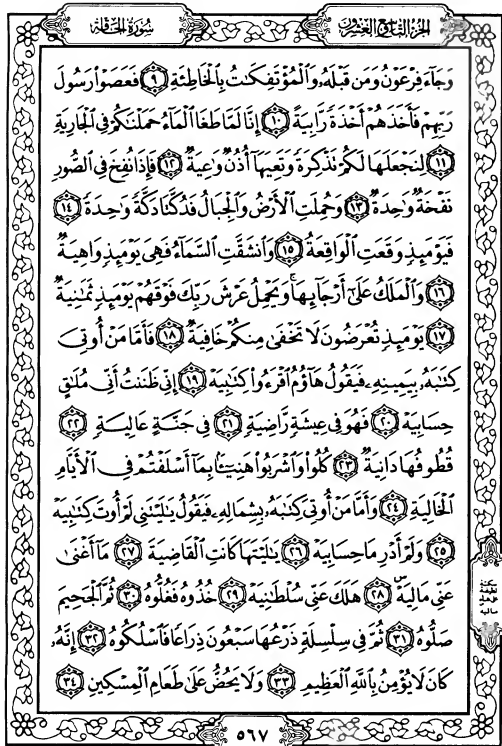 الجُزْءُ التَّاسِعُ وَالعِشْرُونَ سُورَةُ الحَاقَّةِ
وَجَآءَ فِرْعَوْنُ وَمَن قَبْلَهُۥ وَٱلْمُؤْتَفِكَـٰتُ بِٱلْخَاطِئَةِ ٩ فَعَصَوْا۟ رَسُولَ
رَبِّهِمْ فَأَخَذَهُمْ أَخْذَةً رَّابِيَةً ١٠ إِنَّا لَمَّا طَغَا ٱلْمَآءُ حَمَلْنَـٰكُمْ فِى ٱلْجَارِيَةِ
١١ لِنَجْعَلَهَا لَكُمْ تَذْكِرَةً وَتَعِيَهَآ أُذُنٌ وَٰعِيَةٌ ١٢ فَإِذَا نُفِخَ فِى ٱلصُّورِ
نَفْخَةٌ وَٰحِدَةٌ ١٣ وَحُمِلَتِ ٱلْأَرْضُ وَٱلْجِبَالُ فَدُكَّتَا دَكَّةً وَٰحِدَةً ١٤
فَيَوْمَئِذٍ وَقَعَتِ ٱلْوَاقِعَةُ ١٥ وَٱنشَقَّتِ ٱلسَّمَآءُ فَهِىَ يَوْمَئِذٍ وَاهِيَةٌ
١٦ وَٱلْمَلَكُ عَلَىٰٓ أَرْجَآئِهَا ۚ وَيَحْمِلُ عَرْشَ رَبِّكَ فَوْقَهُمْ يَوْمَئِذٍ ثَمَـٰنِيَةٌ
١٧ يَوْمَئِذٍ تُعْرَضُونَ لَا تَخْفَىٰ مِنكُمْ خَافِيَةٌ ١٨ فَأَمَّا مَنْ أُوتِىَ
كِتَـٰبَهُۥ بِيَمِينِهِۦ فَيَقُولُ هَآؤُمُ ٱقْرَءُوا۟ كِتَـٰبِيَهْ ١٩ إِنِّى ظَنَنتُ أَنِّى مُلَـٰقٍ
حِسَابِيَهْ ٢٠ فَهُوَ فِى عِيشَةٍ رَّاضِيَةٍ ٢١ فِى جَنَّةٍ عَالِيَةٍ ٢٢
قُطُوفُهَا دَانِيَةٌ ٢٣ كُلُوا۟ وَٱشْرَبُوا۟ هَنِيٓـًٔۢا بِمَآ أَسْلَفْتُمْ فِى ٱلْأَيَّامِ
ٱلْخَالِيَةِ ٢٤ وَأَمَّا مَنْ أُوتِىَ كِتَـٰبَهُۥ بِشِمَالِهِۦ فَيَقُولُ يَـٰلَيْتَنِى لَمْ أُوتَ كِتَـٰبِيَهْ
٢٥ وَلَمْ أَدْرِ مَا حِسَابِيَهْ ٢٦ يَـٰلَيْتَهَا كَانَتِ ٱلْقَاضِيَةَ ٢٧ مَآ أَغْنَىٰ
عَنِّى مَالِيَهْ ۜ ٢٨ هَلَكَ عَنِّى سُلْطَـٰنِيَهْ ٢٩ خُذُوهُ فَغُلُّوهُ ٣٠ ثُمَّ ٱلْجَحِيمَ
صَلُّوهُ ٣١ ثُمَّ فِى سِلْسِلَةٍ ذَرْعُهَا سَبْعُونَ ذِرَاعًا فَٱسْلُكُوهُ ٣٢ إِنَّهُۥ
كَانَ لَا يُؤْمِنُ بِٱللَّهِ ٱلْعَظِيمِ ٣٣ وَلَا يَحُضُّ عَلَىٰ طَعَامِ ٱلْمِسْكِينِ ٣٤
٥٦٧